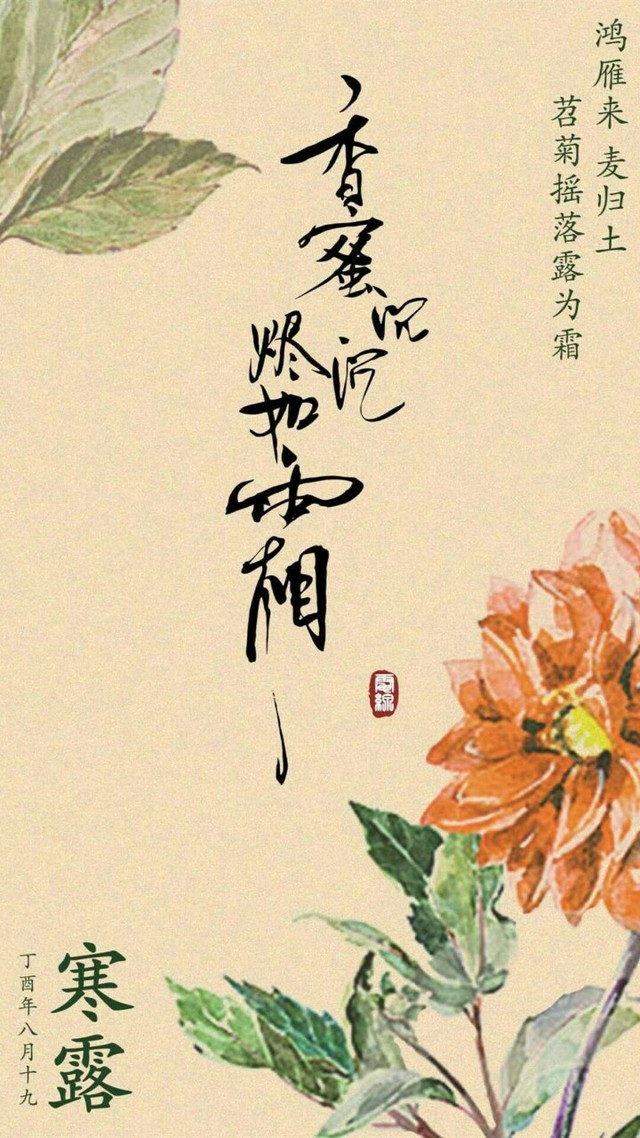 鸿雁来 麦归土
苕菊摇落露为霜
香蜜沉沉
烬如霜
寒露
丁酉年八月十九